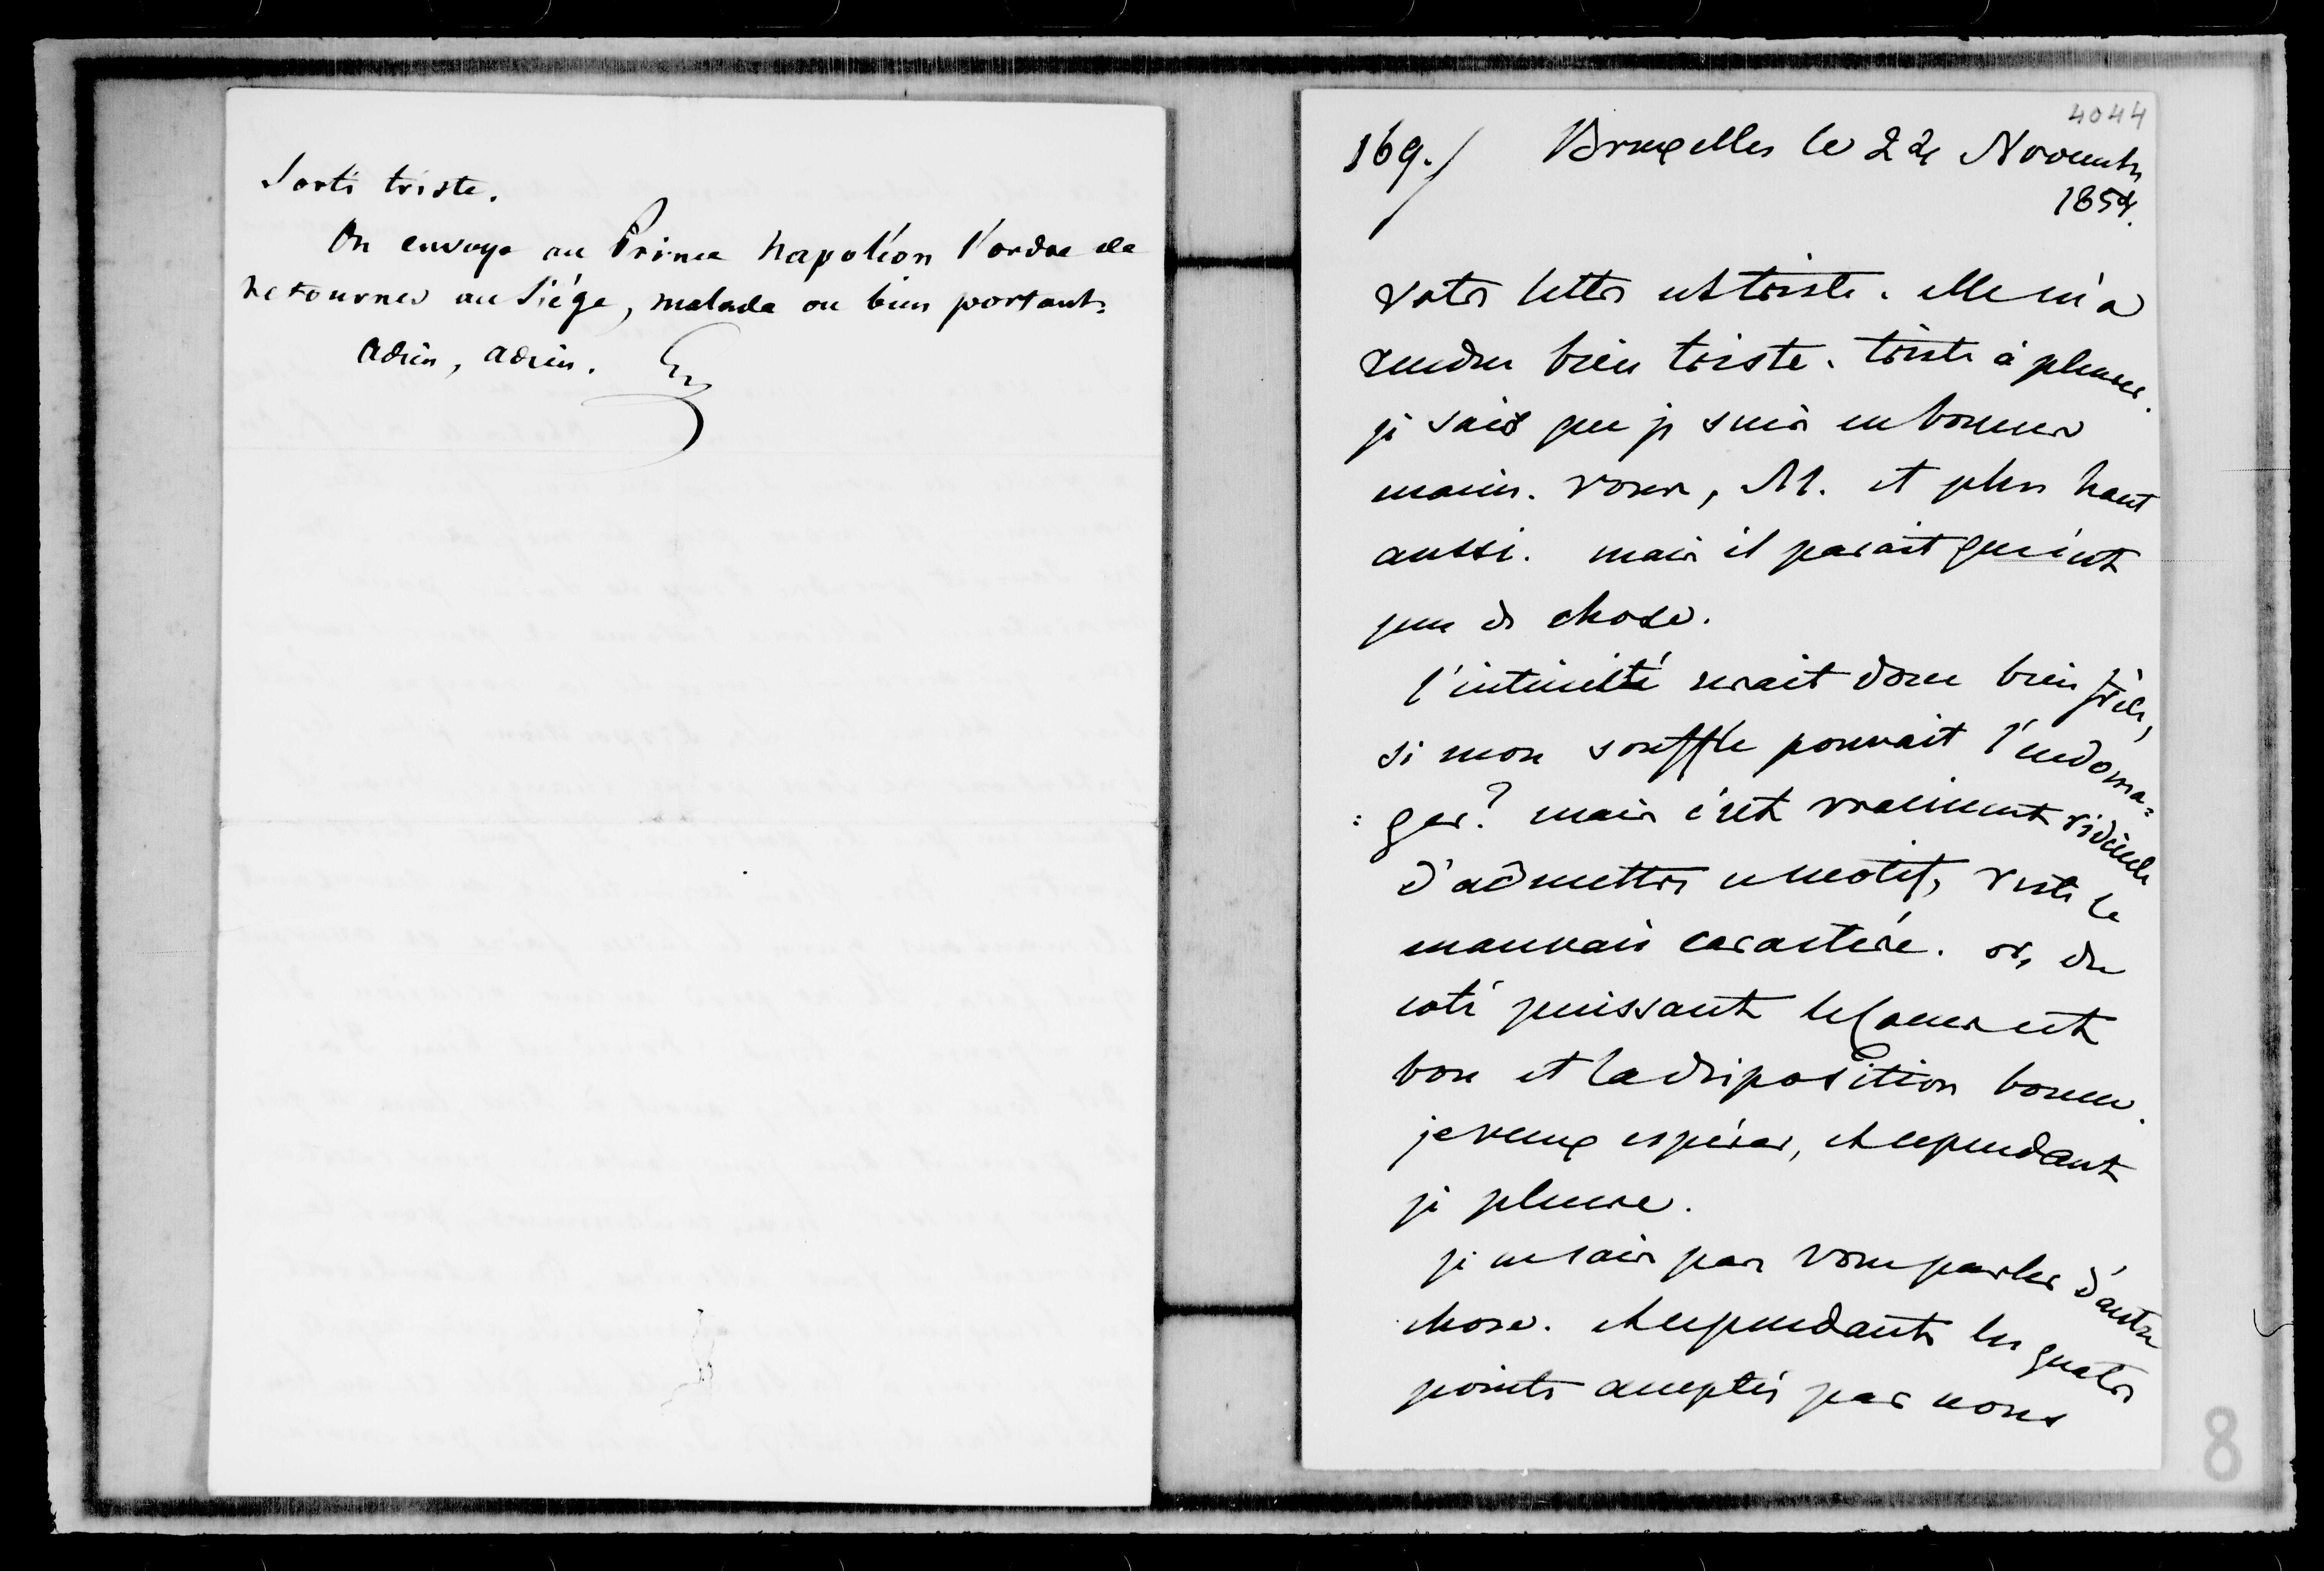 sorti triste.
On envoye au Prince Napoléon l'ordre de
retourner au Siège, malade ou bien portant.
adieu, adieu.
4044
169./ Bruxelles le 22 Novembre
1854.
votre lettre est triste. elle m'a
rendue bien triste. triste à pleurer.
je sais que je suis en bonnes
mains. vous, M. et plus haut
aussi. mais il parait que c'est
peu de chose.
l'intimité serait donc bien frêle,
si mon souffle pouvait l'endoma=
=ger? mais c'est vraiment ridicule
d'admettre ce motif, reste le
mauvais caractère. or, du
coté puissant le cœur est
bon et la disposition bonne.
je veux espérer, et cependant
je pleure.
je ne sais pas vous parler d'autre
chose. et cependant les quatre
points acceptés par nous
8